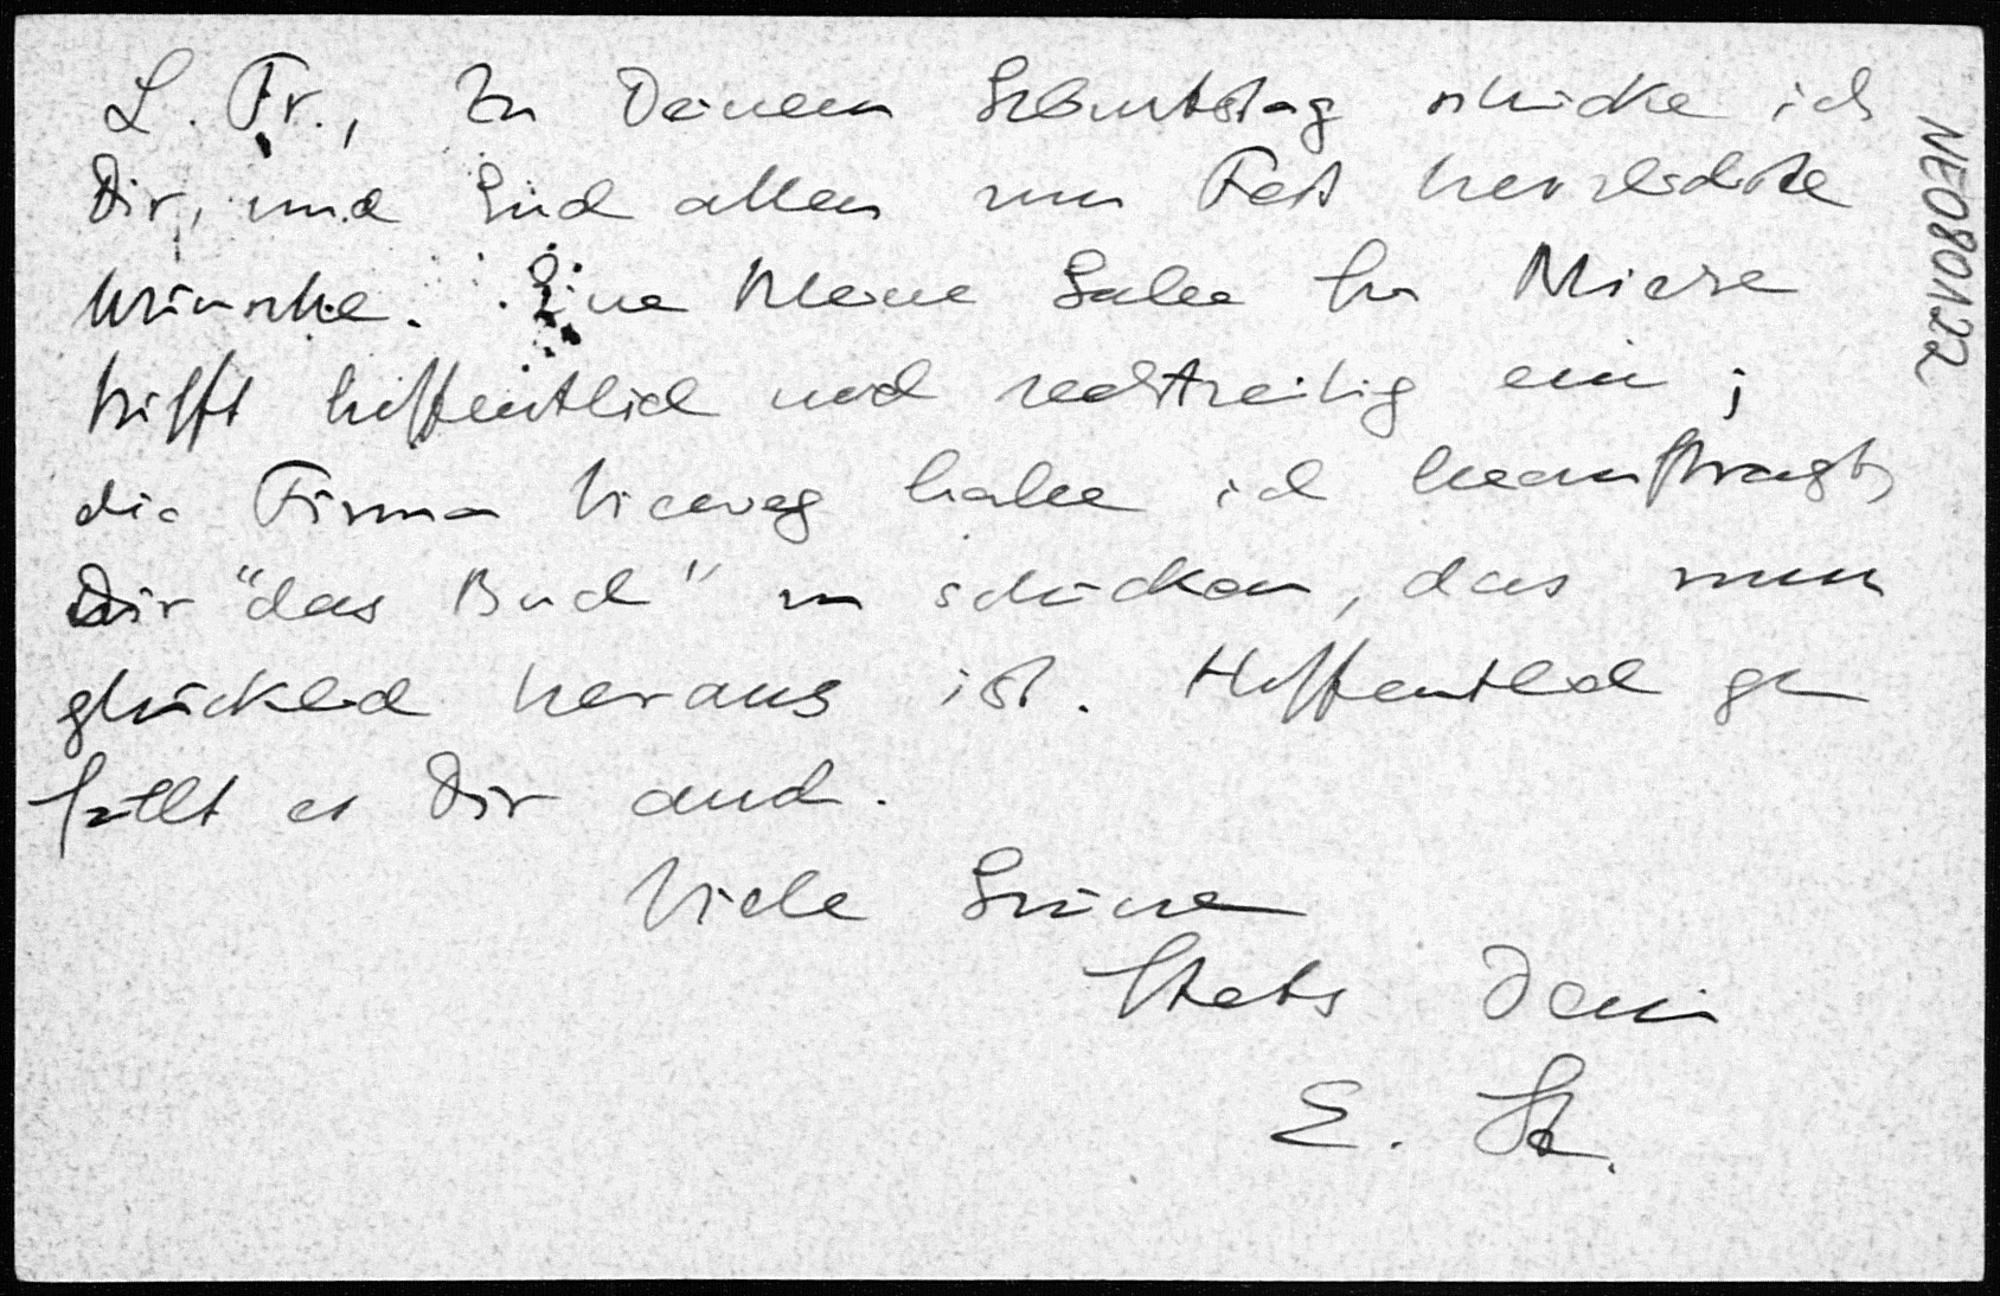 L. Fr., Zu Deinem Geburtstag schicke ich
Dir, und Euch allen zum Fest herzlichste
Wünsche. Eine kleine Gabe für Mieze
trifft hoffentlich noch rechtzeitig ein;
die Firma Vieweg habe ich beauftragt,
Dir "das Buch" zu schicken, das nun
glücklich heraus ist. Hoffentlich ge
fällt es Dir auch.
Viele Grüsse
Stets Dein
E. St.
NE080122